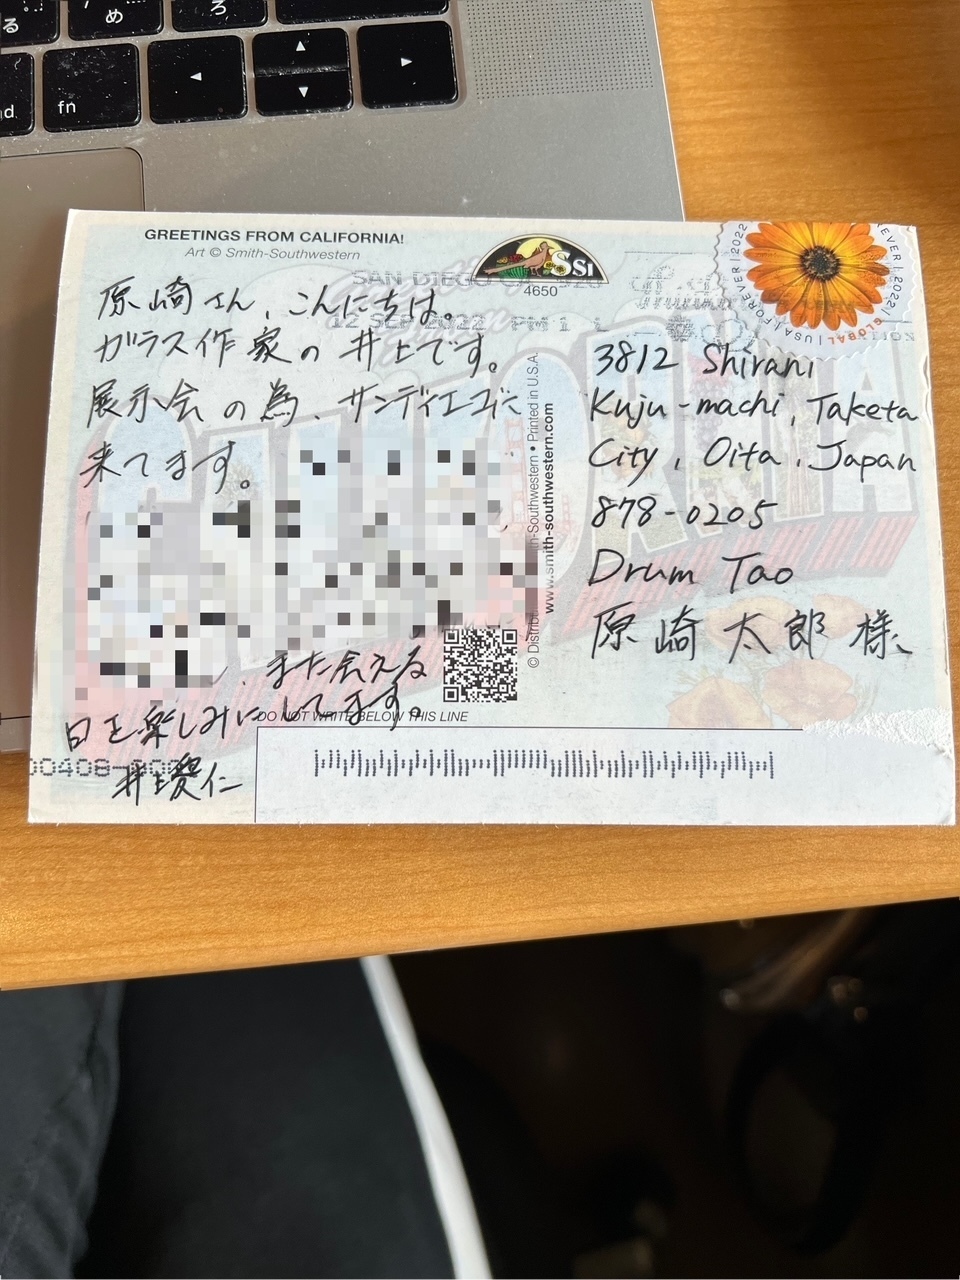 る
め
ろ
fn
GREETINGS FROM CALIFORNIA!
Art © Smith-Southwestern
SSI
4650
SAN DIEGO
12 SEP 2022 PM 1 L
FOREVER | 2022
GLOBAL | USA | FOREVER
原崎さん、こんにちは。
ガラス作家の井上です。
展示会の為、サンディエゴに
来てます。
、また会える
日を楽しみにしてます。
井上愛仁
DO NOT WRITE BELOW THIS LINE
Smith-Southwestern • Printed in U.S.A.
www.smith-southwestern.com
3812 Shirani
Kuju-machi, Taketa
City, Oita, Japan
878-0205
Drum Tao
原崎太郎様、